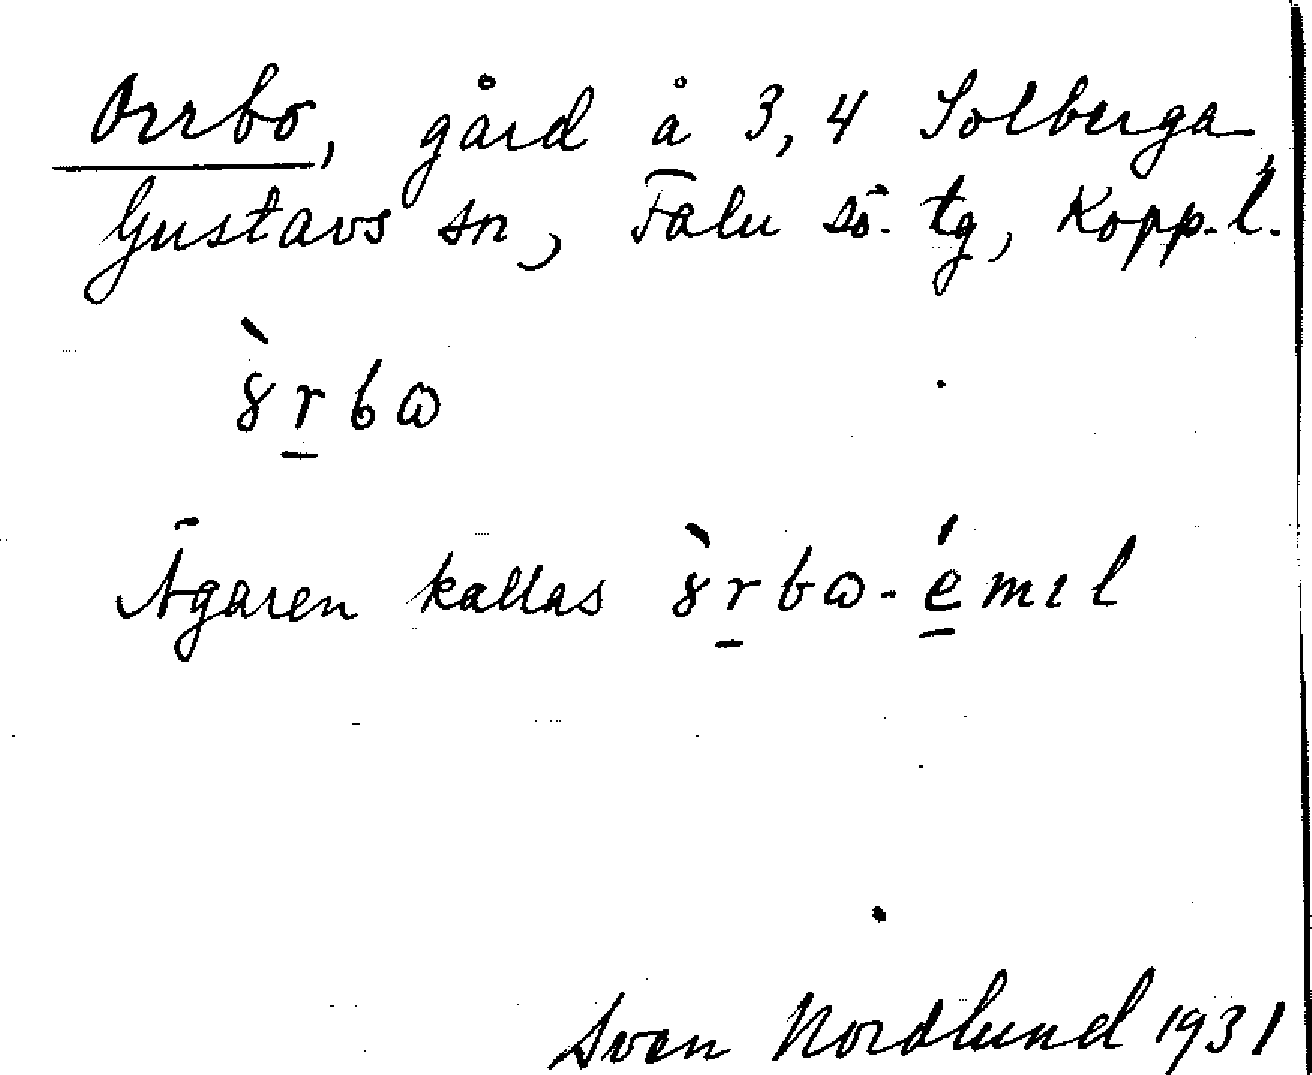 Orrbo, gård å 3, 4 Solberga,
Gustavs sn, Falu sö. tg, Kopp. l.
ȣ̀r̲bω
Ägaren kallas ȣ̀r̲bω-é̲mıl
Sven Nordlund 1931